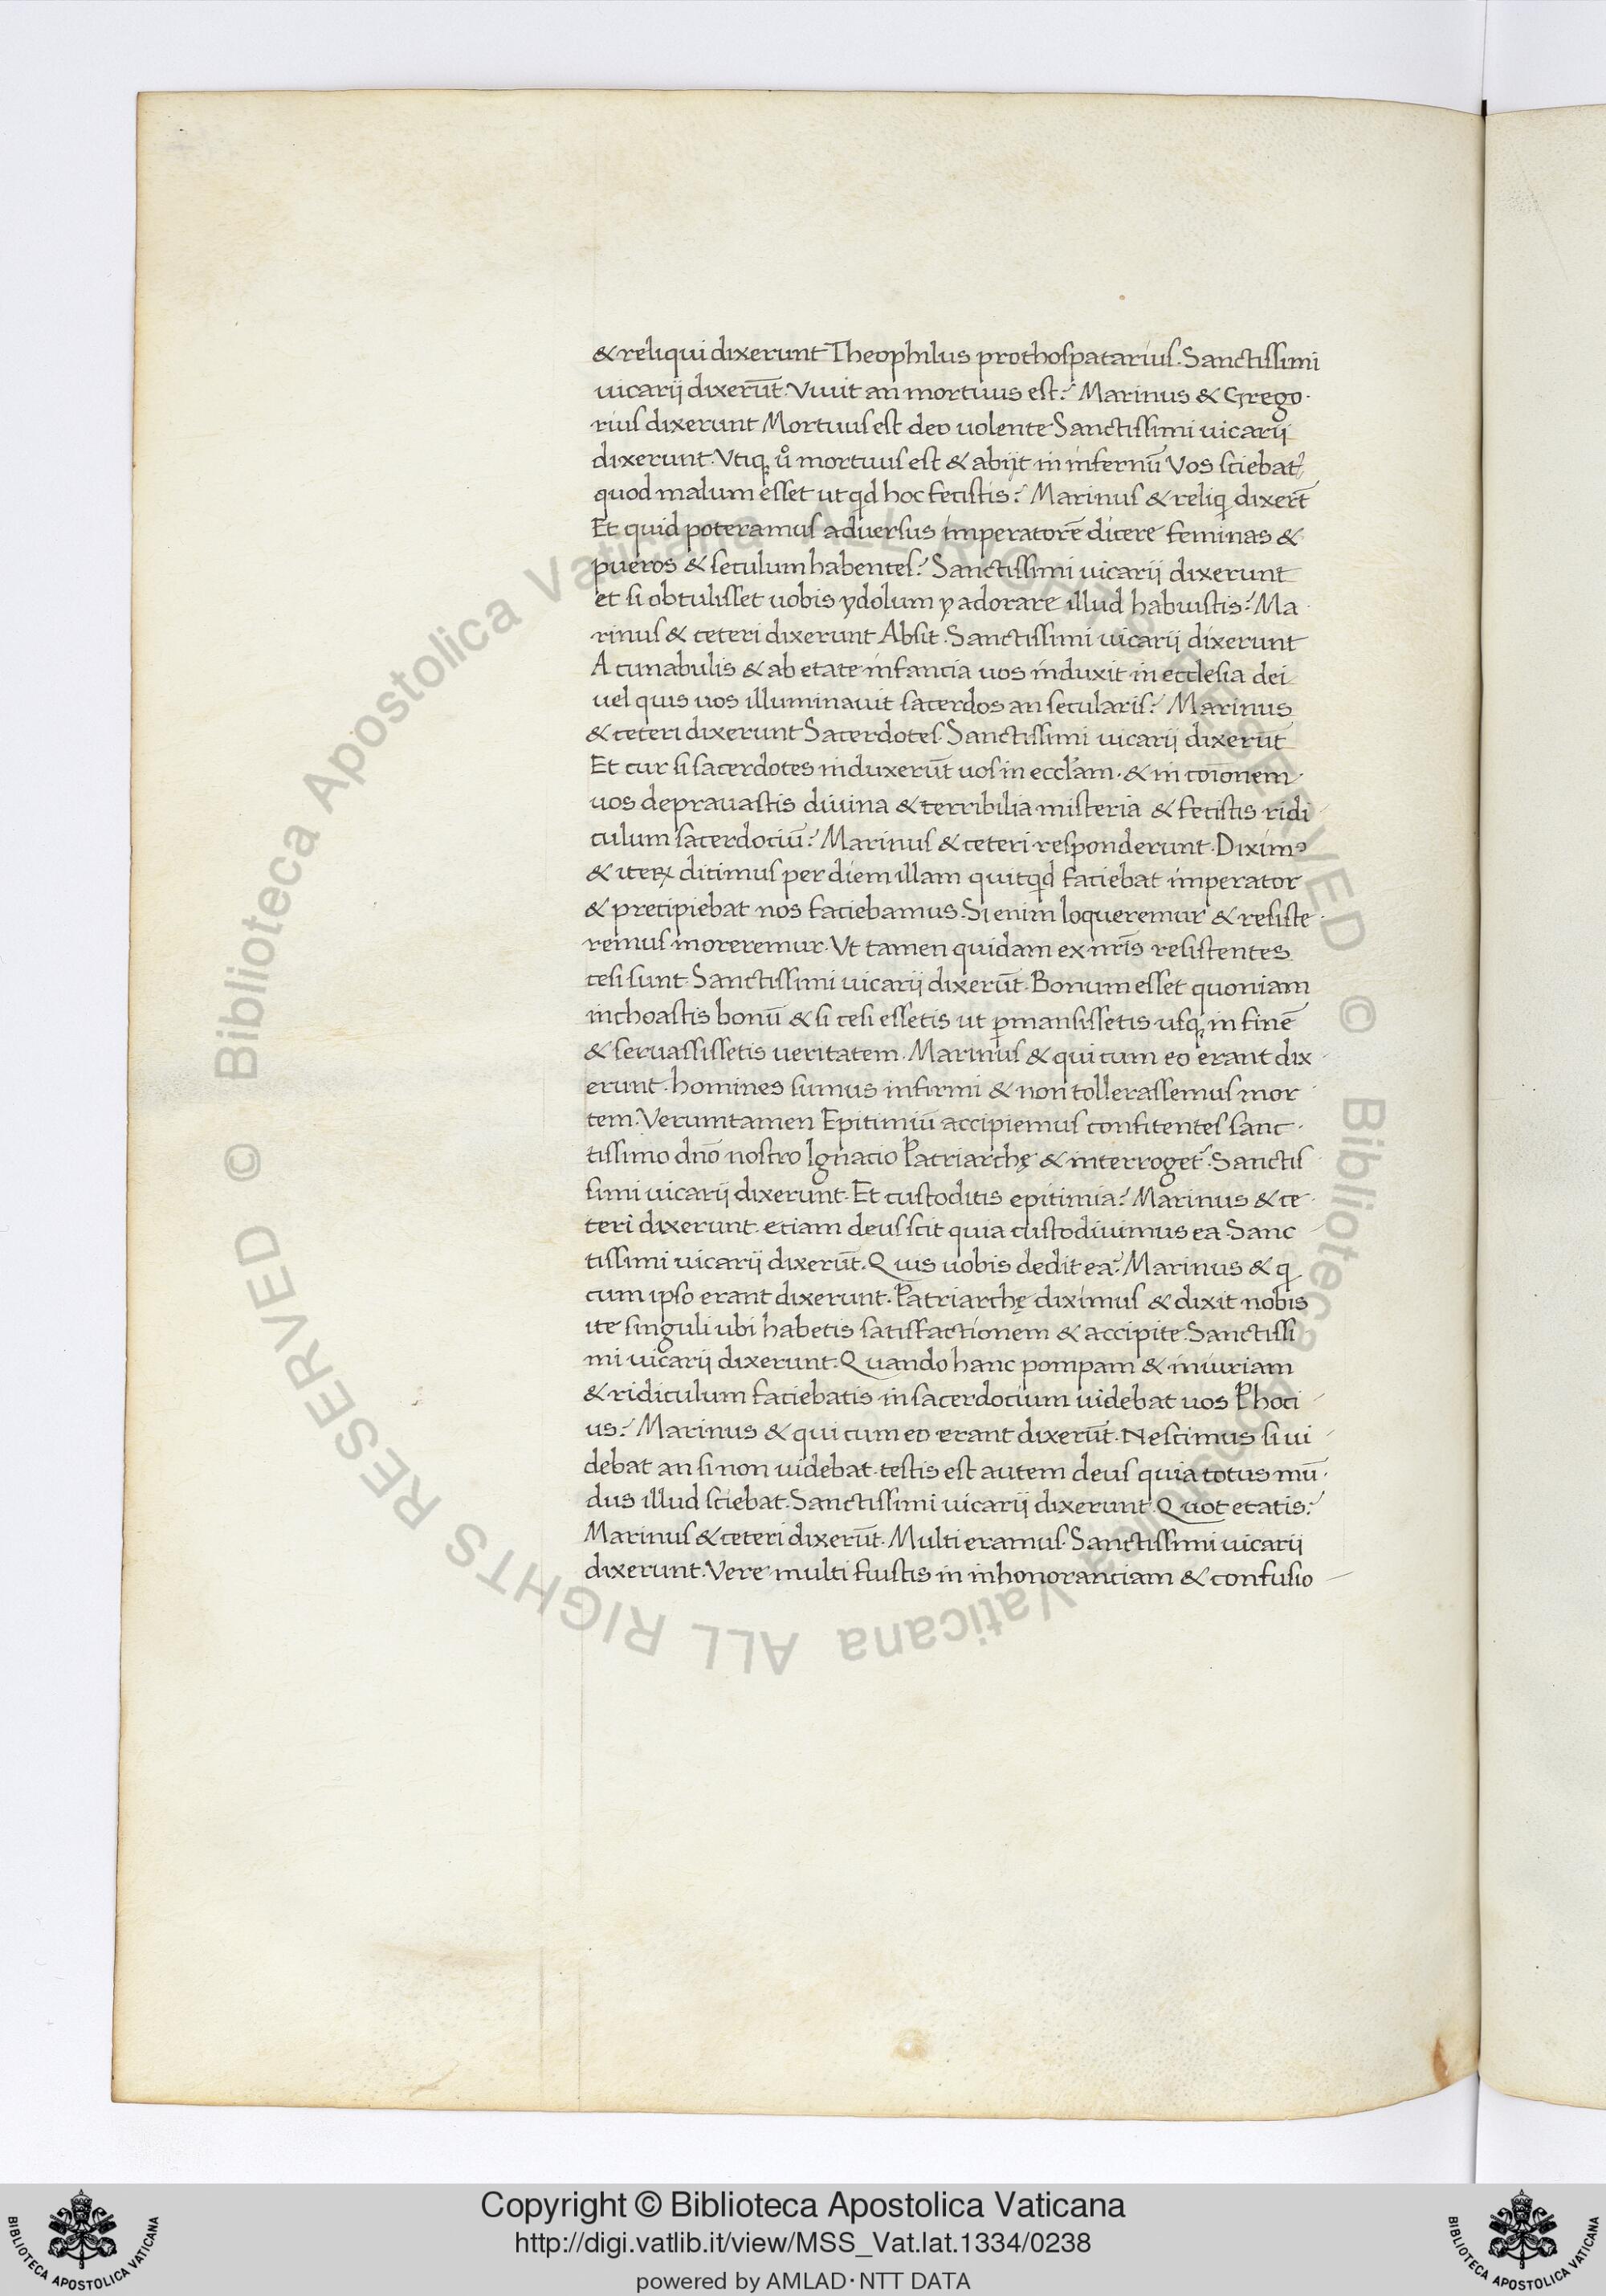 & reliqui dixerunt Theophilus prothospatarius. Sanctissimi
uicarij dixerūt. Viuit an mortuus est? Marinus & Grego·
rius dixerunt Mortuus est deo uolente Sanctissimi uicarij
dixerunt. Vtiqꝫ uͦ mortuus est & abijt in infernū Vos sciebat᷒
quod malum esset ut qd hoc fecistis? Marinus & reliq dixert̄
Et quid poteramus aduersus imperatorē dicere feminas &
pueros & seculum habentes? Sanctissimi uicarij dixerunt
et si obtulisset uobis ydolum y adorare illud habuistis? Ma
rinus & ceteri dixerunt Absit. Sanctissimi uicarij dixerunt
A cunabulis & ab etate infancia uos induxit in ecclesia dei
uel quis uos illuminauit sacerdos an secularis? Marinus
& ceteri dixerunt Sacerdotes. Sanctissimi uicarij dixerūt
Et cur si sacerdotes induxerūt uos in eccl'am. & in coīonem
uos deprauastis diuina & terribilia misteria & fecistis ridi
culum sacerdociū? Marinus & ceteri responderunt. Diximꝰ
& iteꝝ dicimus per diem illam quicqd faciebat imperator
& precipiebat nos faciebamus. Si enim loqueremur & resiste
remus moreremur. Vt tamen quidam ex nr̄is resistentes
cesi sunt. Sanctissimi uicarij dixerūt. Bonum esset quoniam
inchoastis bonū & si cesi essetis ut ꝑmansissetis usqꝫ in finē
& seruassissetis ueritatem. Marinus & qui cum eo erant dix
erunt. homines sumus infirmi & non tollerassemus mor
tem. Verumtamen Epitimiū accipiemus confitentes sanc·
tissimo dn̄o nostro Ignacio Patriarchę & interroget. Sanctis
simi uicarij dixerunt. Et custoditis epitimia? Marinus & ce
teri dixerunt. etiam deus scit quia custodiuimus ea. Sanc
tissimi uicarij dixerūt. Quis uobis dedit ea? Marinus & q
cum ipso erant dixerunt. Patriarchę diximus & dixit nobis
ite singuli ubi habetis satisfactionem & accipite. Sanctissi
mi uicarij dixerunt. Quando hanc pompam & iniuriam
& ridiculum faciebatis in sacerdocium uidebat uos Phoci
us? Marinus & qui cum eo erant dixerūt. Nescimus si ui
debat an si non uidebat. testis est autem deus quia totus mū·
dus illud sciebat. Sanctissimi uicarij dixerunt Quot etatis?
Marinus & ceteri dixerūt. Multi eramus. Sanctissimi uicarij
dixerunt. Vere multi fiustis in inhonoranciam & confusio
© Biblioteca Apostolica Vaticana ALL RIGHTS RESERVED © Biblioteca Apostolica Vaticana ALL RIGHTS RESERVED
BIBLIOTECA APOSTOLICA VATICANA
Copyright © Biblioteca Apostolica Vaticana
http://digi.vatlib.it/view/MSS_Vat.lat.1334/0238
powered by AMLAD·NTT DATA
BIBLIOTECA APOSTOLICA VATICANA